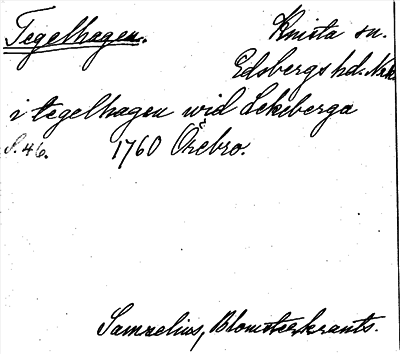 Tegelhagen.
Knista sn.
Edsbergs hd. Närke
i tegelhagen wid Lekeberga
S. 46. 1760 Örebro.
Samzelius, Blomsterkrants.